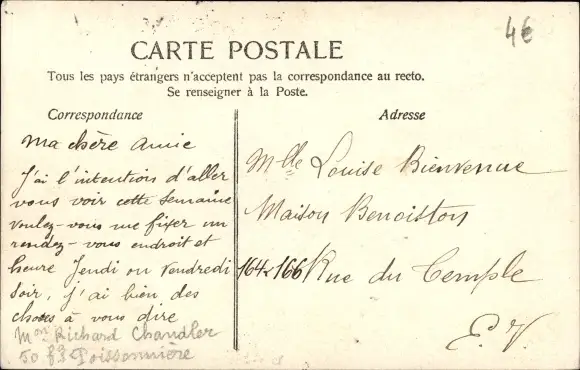 4€
CARTE POSTALE
Tous les pays étrangers n'acceptent pas la correspondance au recto.
Se renseigner à la Poste.
Correspondance
Ma chère Amie
J'ai l'intention d'aller
vous voir cette semaine
voulez-vous me fixer un
rendez-vous endroit et
heure Jendi ou Vendredi
soir, j'ai bien des
choses à vous dire
Mon Richard Chandler
50 fg Poissonnière
Adresse
Mlle Louise Bienvenue
Maison Benoiston
164 & 166 Rue du Temple
E.V.